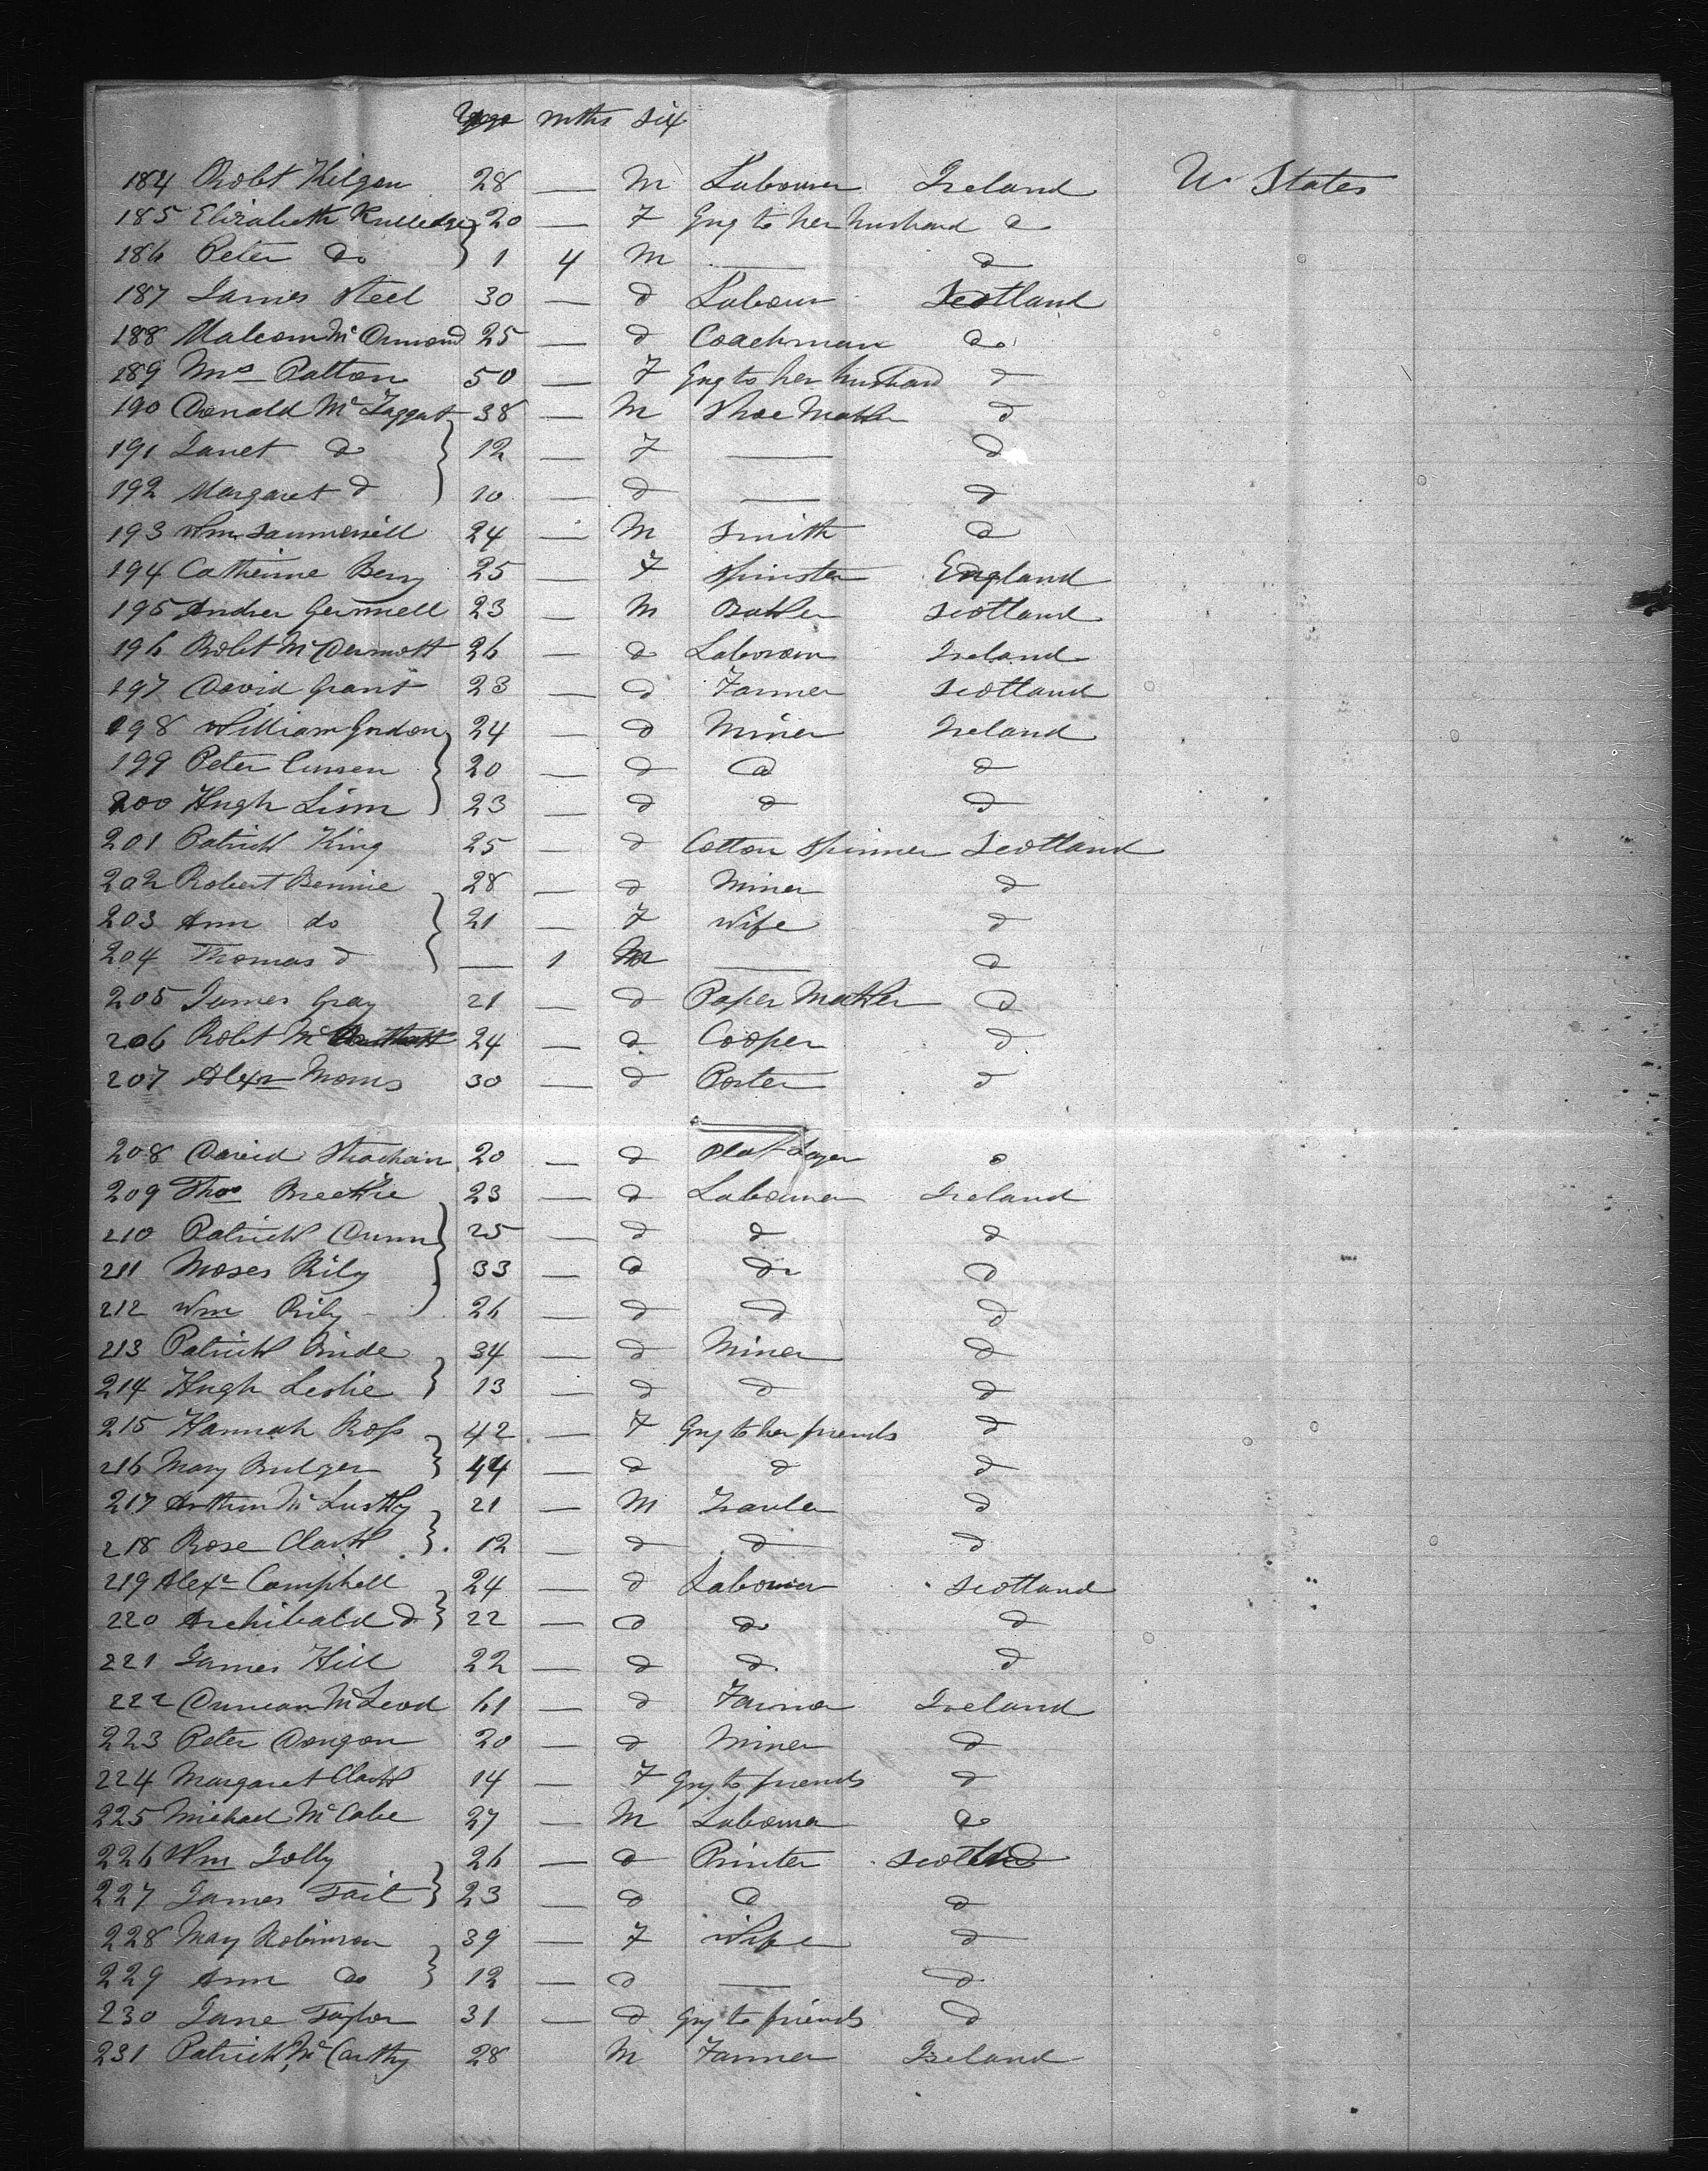 Yrs mths sex
184 Robt Kilgen 28 — M Labourer Ireland U States
185 Elizabeth Rulledge 20 — F Gng to her husband d
186 Peter do 1 4 M — d
187 James Steel 30 — d Labour Scotland
188 Malcom McOrmond 25 — d Coachman do
189 Mrs Patton 50 — F Gng to her husband d
190 Donald McTaggat 38 — M Shoe Maker d
191 Janet do 12 — F — d
192 Margaret d 10 — d — d
193 Wm Summerill 24 — M Smith d
194 Catherine Berry 25 — F Spinster England
195 Andrew Gemmell 23 — M Baker Scotland
196 Robt McDermott 26 — d Labourer Ireland
197 David Grant 23 — d Farmer Scotland
198 William Gordon 24 — d Miner Ireland
199 Peter Curren 20 — d d d
200 Hugh Linn 23 — d d d
201 Patrick King 25 — d Cotton Spinner Scotland
202 Robert Bennie 28 — d Miner d
203 Ann do 21 — F Wife d
204 Thomas d — 1 M — d
205 James Gray 21 — d Paper Maker d
206 Robt Mc 24 — d Cooper d
207 Alexr Morris 30 — d Porter d
208 David Strachan 20 — d Plat Layer d
209 Thos Breckie 23 — d Labourer Ireland
210 Patrick Dunn 25 — d d d
211 Moses Rily 33 — d do d
212 Wm Rily 26 — d d d
213 Patrick Bride 34 — d Miner d
214 Hugh Leslie 13 — d d d
215 Hannah Ross 42 — F Gng to her friends d
216 Mary Bulger 44 — d d d
217 Arthur McLuskly 21 — M d
218 Rose Clark 12 — d d d
219 Alexr Campbell 24 — d Labourer Scotland
220 Archibald d 22 — d do d
221 James Hill 22 — d d d
222 Duncan McLeod 61 — d Farmer Ireland
223 Peter Dongon 20 — d Miner d
224 Margaret Clark 14 — F Gng to friends d
225 Michael McCabe 27 — M Labourer do
226 Wm Jolly 26 — d Printer Scotland
227 James Tait 23 — d d d
228 May Robinson 39 — F Wife d
229 Ann do 12 — d — d
230 Jane Taylor 31 — d Gng to friends d
231 Patrick McCarthy 28 M Farmer Ireland